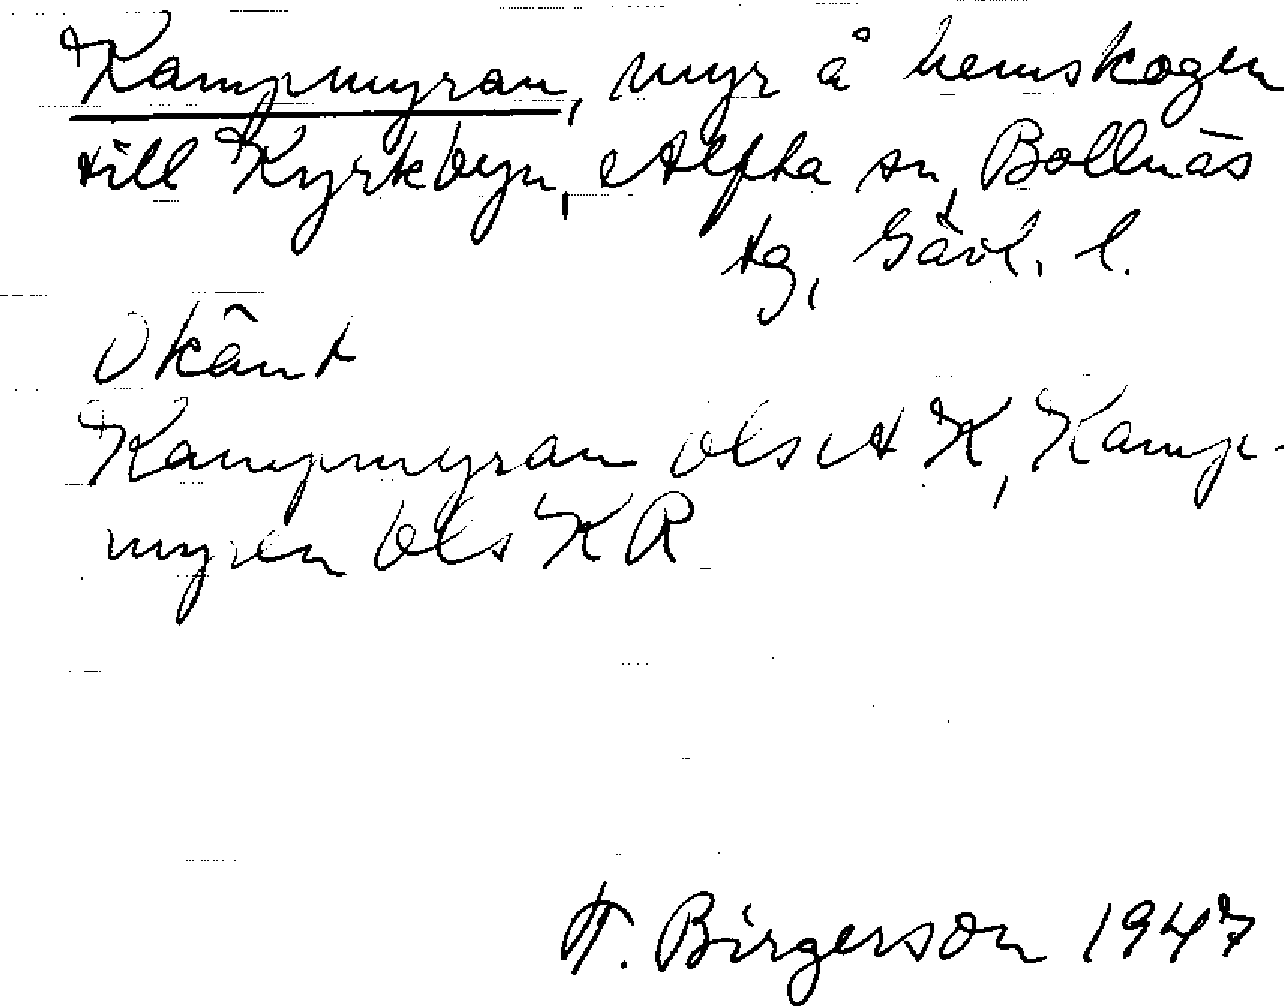 Kampmyran, myr å hemskogen
till Kyrkbyn, Alfta sn, Bollnäs
tg, Gävl. l.
Okänt
Kampmyran olsA K, Kamp-
myren Ols KR
T. Birgerson 1947